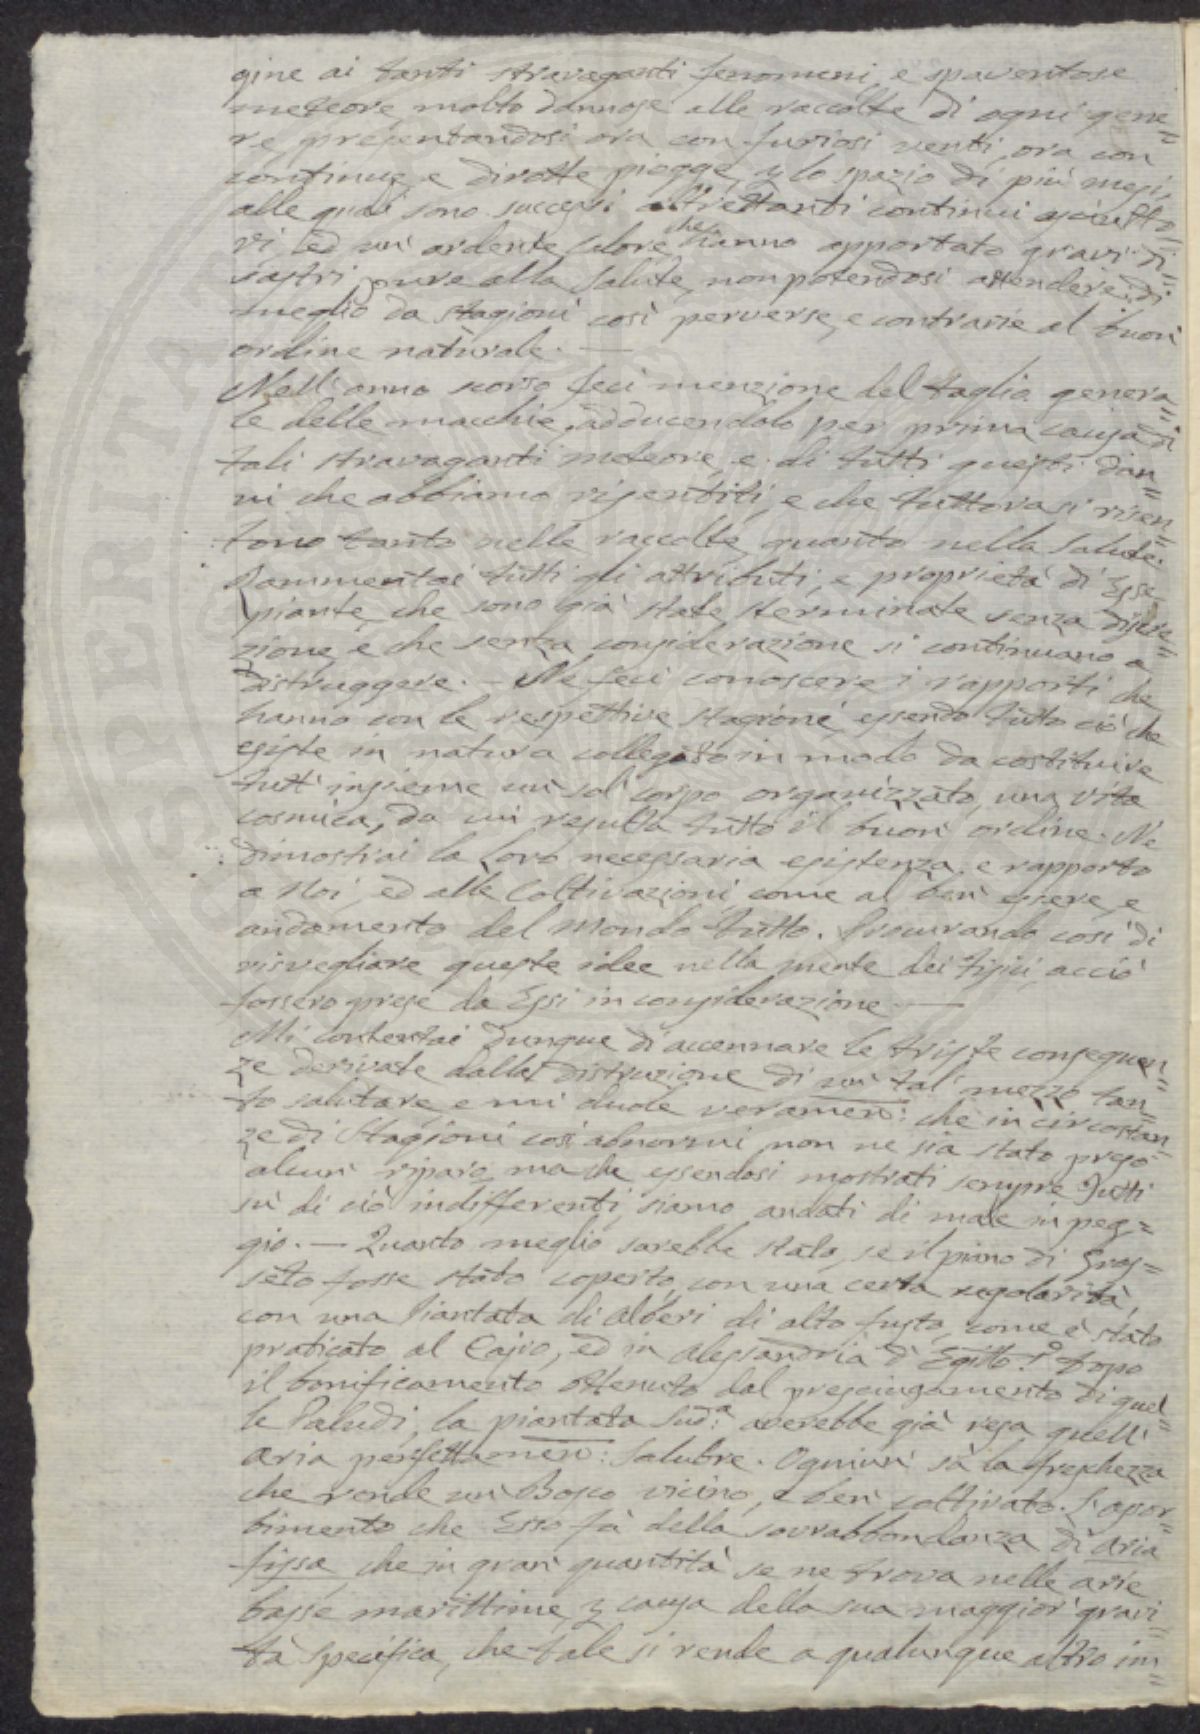 gine ai tanti stravaganti fenomeni, e spaventose
meteore, molto dannose alle raccolte di ogni gene=
re presentandosi ora con furiosi venti, ora con
continue, e dirotte piogge, p lo spazio di più mesi,
alle quali sono successi altrettanti continui asciutto=
ri, ed un' ardente calore che hanno apportato gravi di=
sastri pure alla salute, non potendosi attendere di
meglio da stagioni così perverse, e contrarie al buon
ordine naturale. —
Nell' anno scorso feci menzione del taglio genera=
le delle macchie, adducendolo per prima causa di
tali stravaganti meteore, e di tutti questi dan=
ni che abbiamo risentiti, e che tuttora si risen=
tono tanto nelle raccolte, quanto nella salute.
Rammentai tutti gli attributi, e proprietà di Esse
piante, che sono già state sterminate senza discre=
zione, e che senza considerazione si continuano a
distruggere. — Ne feci conoscere i rapporti che
hanno con le respettive stagioni, essendo tutto ciò che
esiste in natura collegato in modo da costituire
tutt' insieme un' sol' corpo organizzato, una vita
cosmica, da cui resulta tutto il buon' ordine. Ne
dimostrai la loro necessaria esistenza, e rapporto
a Noi, ed alle Coltivazioni, come al ben' essere, e
andamento del Mondo tutto. Procurando così di
risvegliare queste idee nella mente dei Fisici, acciò
fossero prese da Essi in considerazione. —
Mi contentai dunque di accennare le triste conseguen=
ze derivate dalla distruzione di un' tal' mezzo tan=
to salutare, e mi duole veramen: che in circostan=
ze di Stagioni così abnormi non ne sia stato preso
alcun' riparo, ma che essendosi mostrati sempre Tutti
sù di ciò indifferenti, siamo andati di male in peg=
gio. — Quanto meglio sarebbe stato, se il piano di Gros=
seto fosse stato coperto, con una certa regolarità,
con una Piantata di Alberi di alto fusto, come è stato
praticato al Cajro, ed in Alessandria d' Egitto! Dopo
il bonificamento ottenuto dal prosciugamento di quel=
le Paludi, la piantata sud.a averebbe già resa quell'
aria perfettamen: salubre. Ogniun' sà la freschezza
che rende un' Bosco vicino, e ben' coltivato. L' assor=
bimento che Esso fà della sovrabbondanza di aria
fissa, che in gran' quantità se ne trova nelle arie
basse marittime, p causa della sua maggior' gravi=
tà specifica, che tale si rende a qualunque altro im=